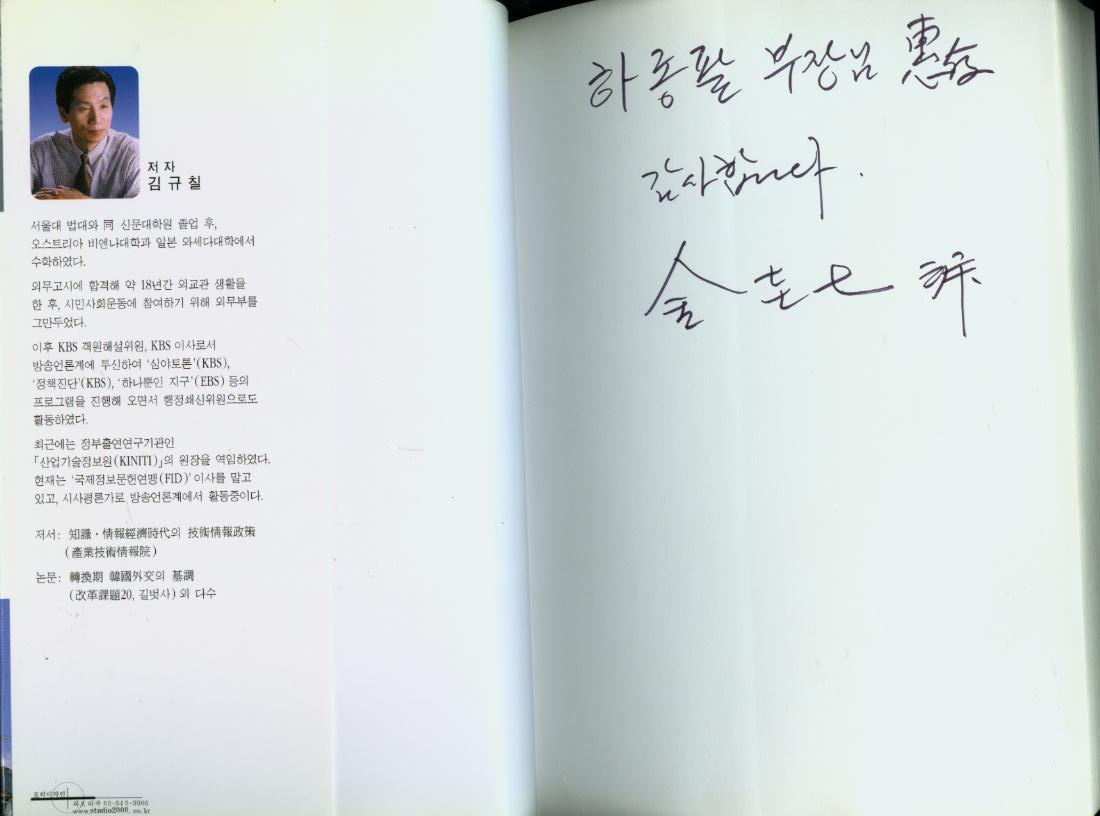 저 자
김 규 칠
서울대 법대와 同 신문대학원 졸업 후,
오스트리아 비엔나대학과 일본 와세다대학에서
수학하였다.
외무고시에 합격해 약 18년간 외교관 생활을
한 후, 시민사회운동에 참여하기 위해 외무부를
그만두었다.
이후 KBS 객원해설위원, KBS 이사로서
방송언론계에 투신하여 ‘심야토론’(KBS),
‘정책진단’(KBS), ‘하나뿐인 지구’(EBS) 등의
프로그램을 진행해 오면서 행정쇄신위원으로도
활동하였다.
최근에는 정부출연연구기관인
「산업기술정보원(KINITI)」의 원장을 역임하였다.
현재는 ‘국제정보문헌연맹(FID)’ 이사를 맡고
있고, 시사평론가로 방송언론계에서 활동중이다.
저서: 知識·情報經濟時代의 技術情報政策
(產業技術情報院)
논문: 轉換期 韓國外交의 基調
(改革課題20, 길벗사) 외 다수
표지디자인
02-549-9906
www.studio2000.co.kr
하종팔 부장님 惠存
감사합니다.
金圭七